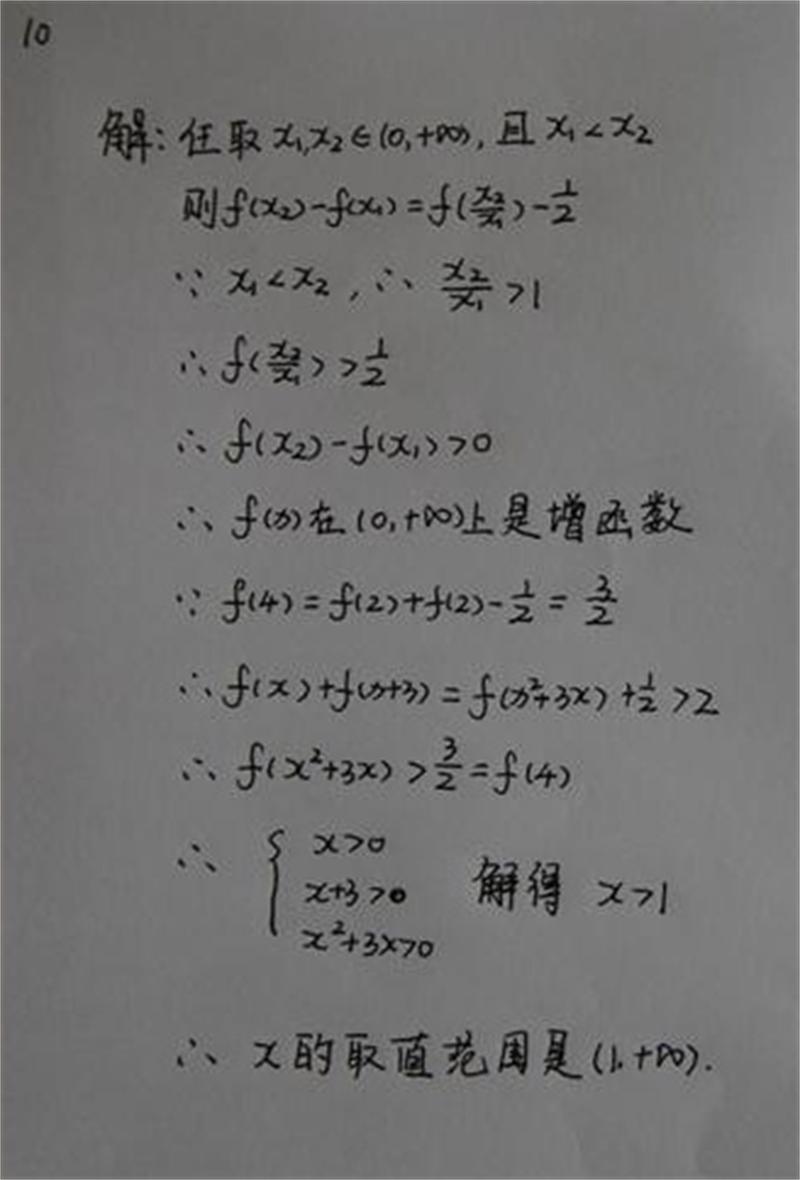 10
解: 任取 x₁,x₂∈(0,+∞), 且 x₁<x₂
则 f(x₂)-f(x₁)=f(x₂/x₁)-1/2
∵ x₁<x₂, ∴ x₂/x₁>1
∴ f(x₂/x₁)>1/2
∴ f(x₂)-f(x₁)>0
∴ f(x)在(0,+∞)上是增函数
∵ f(4)=f(2)+f(2)-1/2=3/2
∴ f(x)+f(x+3)=f(x²+3x)+1/2>2
∴ f(x²+3x)>3/2=f(4)
∴ { x>0
x+3>0 解得 x>1
x²+3x>0
∴ x的取值范围是(1,+∞).